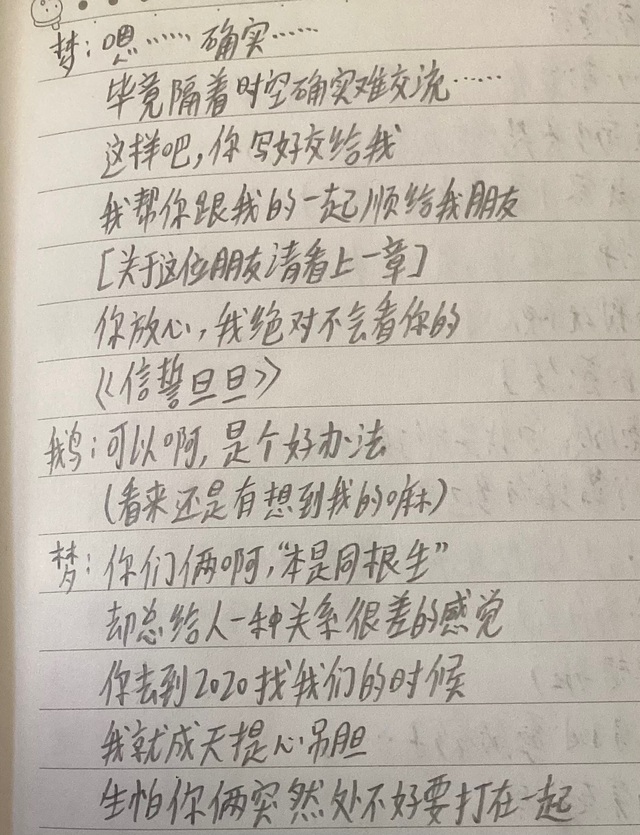 梦：嗯……确实……
毕竟隔着时空确实难交流……
这样吧，你写好交给我
我帮你跟我的一起顺给我朋友
[关于这位朋友请看上一章]
你放心，我绝对不会看你的
《信誓旦旦》
鹅：可以啊，是个好办法
(看来还是有想到我的嘛)
梦：你们俩啊，“本是同根生”
却总给人一种关系很差的感觉
你去到2020找我们的时候
我就成天提心吊胆
生怕你俩突然处不好要打在一起